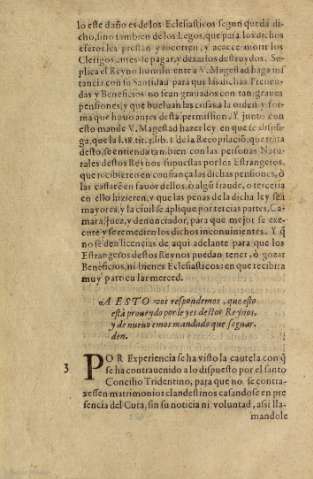 lo este daño es de los Eclesiasticos segun queda di-
cho, sino tambien de los Legos, que para los dichos
efetos les prestan y socorren, y acaece morir los
Clerigos antes de pagar, y dexarlos destruydos. Su-
plica el Reyno humilmente a V. Magestad haga ins-
tancia con su Santidad para que las dichas Preuen-
das y Beneficios no sean grauados con tan graues
pensiones, y que bueluan las cosas a la orden y for-
ma que hauo antes desta permission. Y junto con
esto mande V. Magestad hazer ley en que se dispon-
ga, que la l. 18. tit. 3. lib. 1. de la Recopilacio q̃ trata
desto, se entienda tambien con las personas Natu-
rales destos Reynos supuestas por los Estrangeros,
que recibieren en confiança las dichas pensiones, o
las gastaren en fauor dellos, o algũ fraude, o terceria
en ello hizieren, y que las penas de la dicha ley sea
mayores, y la ciuil se aplique por tercias partes, Ca-
mara, Iuez, y denunciador, para que mejor se exe-
cute y se remedien los dichos inconuinientes. Y q̃
no se den licencias de aqui adelante para que los
Estrangeros destos Reynos puedan tener, o gozar
Beneficios, ni bienes Eclesiasticos: en que recibira
muy particular merced.
A ESTO vos respondemos, que esto
està proueydo por leyes destos Reynos,
y de nueuo emos mandado que se guar-
den.
3 POR Experiencia se ha visto la cautela con q̃
se ha contrauenido a lo dispuesto por el santo
Concilio Tridentino, para que no se contra-
xessen matrimonios clandestinos casandose en pre
sencia del Cura, sin su noticia ni voluntad, assi lla-
mandole